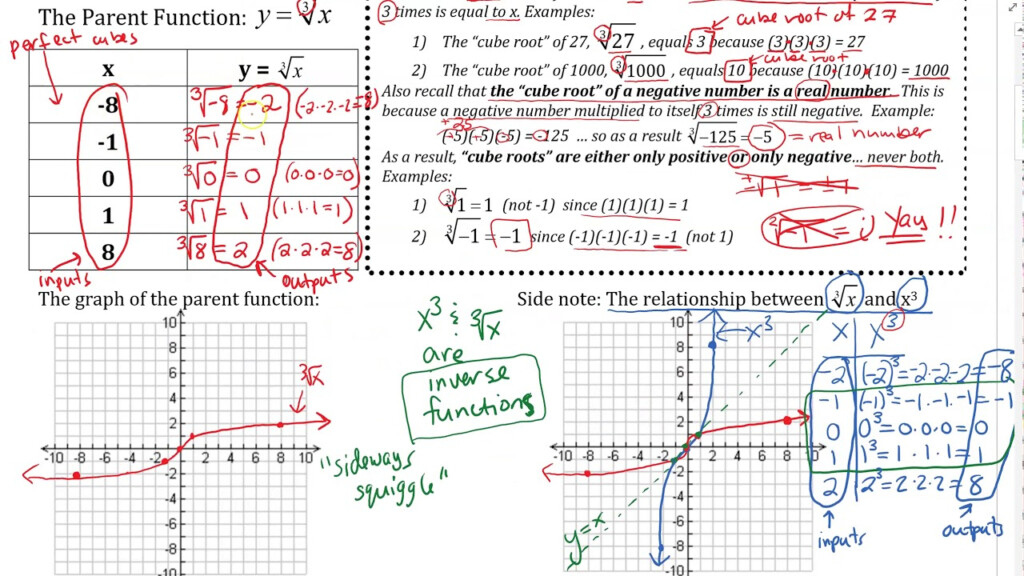 The Parent Function: y = ∛x
perfect cubes
x y = ∛x
-8 ∛-8 = -2 (-2·-2·-2=-8)
-1 ∛-1 = -1
0 ∛0 = 0 (0·0·0=0)
1 ∛1 = 1 (1·1·1=1)
8 ∛8 = 2 (2·2·2=8)
inputs outputs
3 times is equal to x. Examples:
cube root of 27
1) The “cube root” of 27, ∛27 , equals 3 because (3)(3)(3) = 27
cube root
2) The “cube root” of 1000, ∛1000 , equals 10 because (10)(10)(10) = 1000
Also recall that the “cube root” of a negative number is a real number. This is
because a negative number multiplied to itself 3 times is still negative. Example:
+25
(-5)(-5)(-5) = -125 ... so as a result ∛-125 = -5 = real number
As a result, “cube roots” are either only positive or only negative... never both.
Examples:
1) ∛1 = 1 (not -1) since (1)(1)(1) = 1
2) ∛-1 = -1 since (-1)(-1)(-1) = -1 (not 1)
Yay!!
The graph of the parent function:
10
8
6
4
2
-10 -8 -6 -4 -2 2 4 6 8 10
-2
-4
-6
-8
-10
∛x
x³ & ∛x
are
inverse
functions
"sideways
squiggle"
Side note: The relationship between ∛x and x³
10
8
6
4
2
-10 -8 -6 -4 -2 2 4 6 8 10
-2
-4
-6
-8
-10
x³
y=x
x x³
-2 (-2)³=-2·-2·-2=-8
-1 (-1)³=-1·-1·-1=-1
0 0³=0·0·0=0
1 1³=1·1·1=1
2 2³=2·2·2=8
inputs outputs